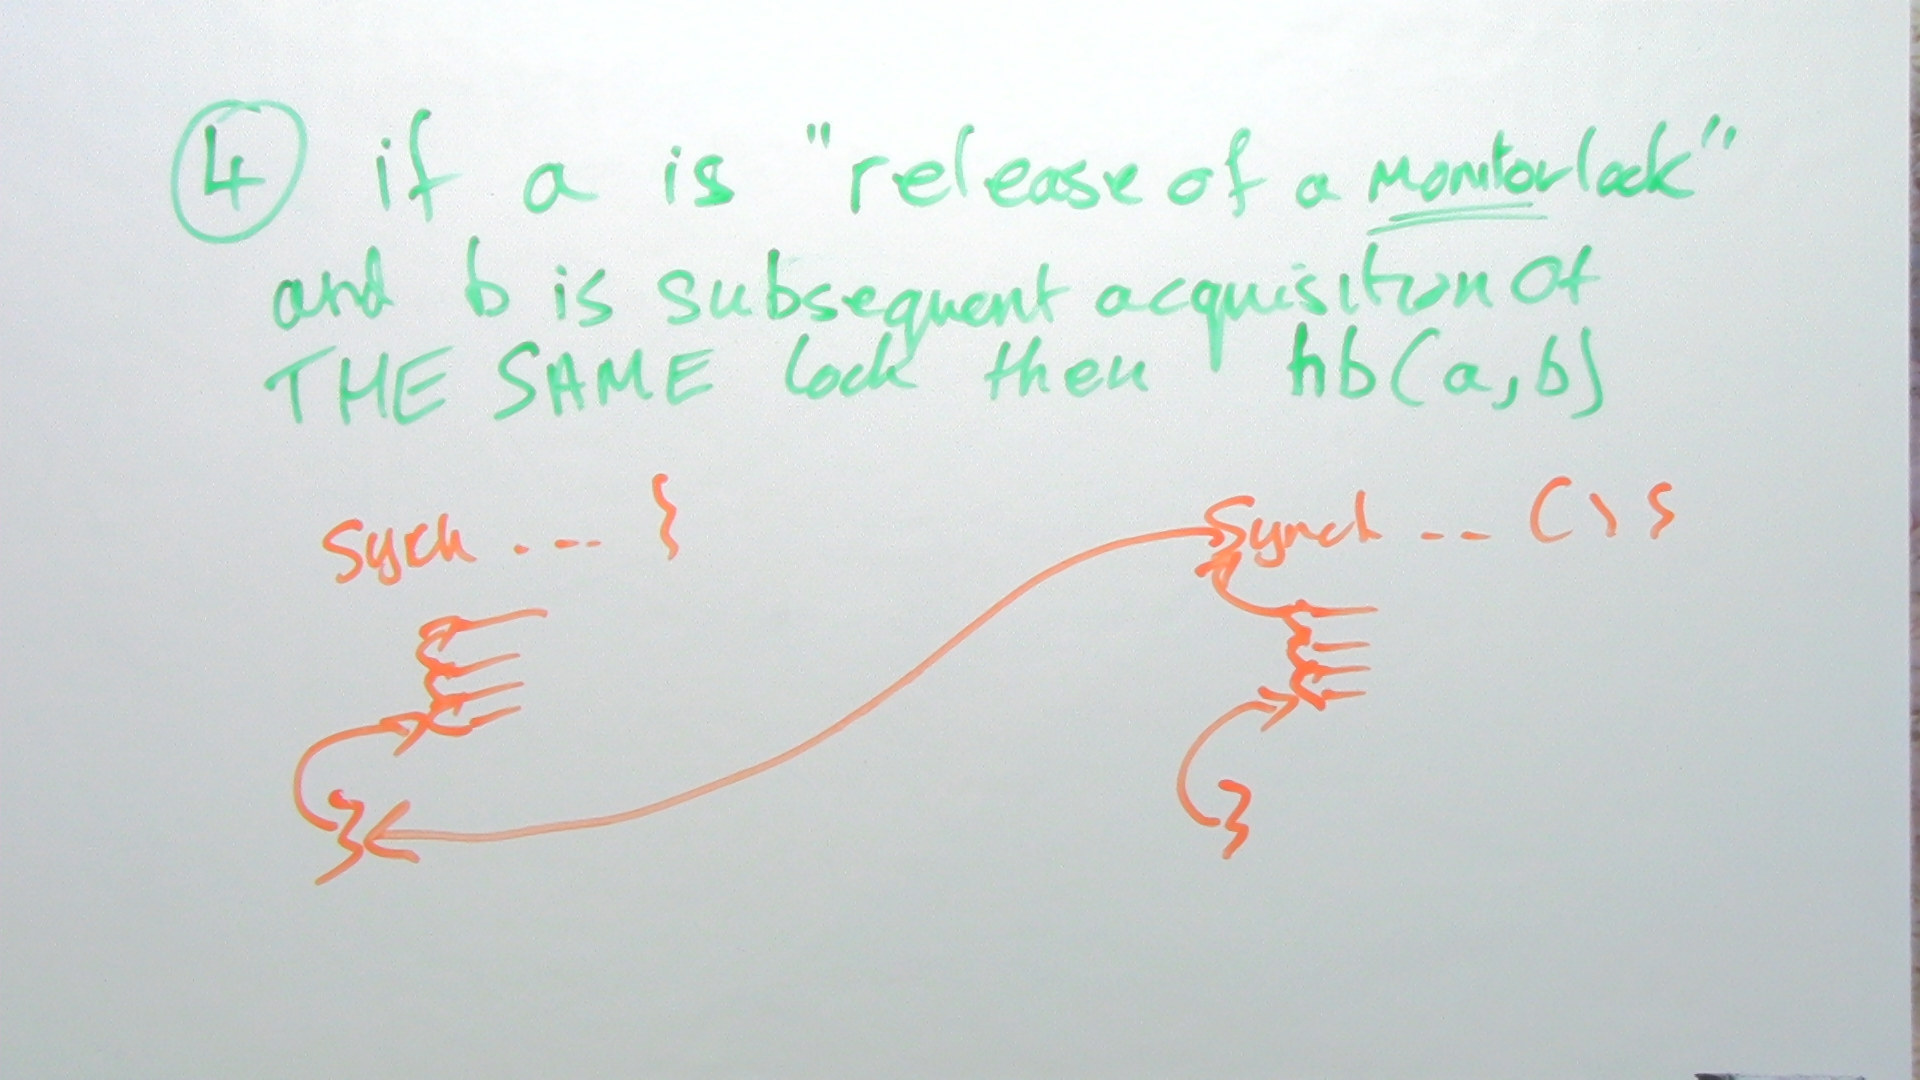 4 if a is "release of a monitor lock"
and b is subsequent acquisition of
THE SAME lock then hb(a,b)
Synch ... {
Synch -- () {
}
}